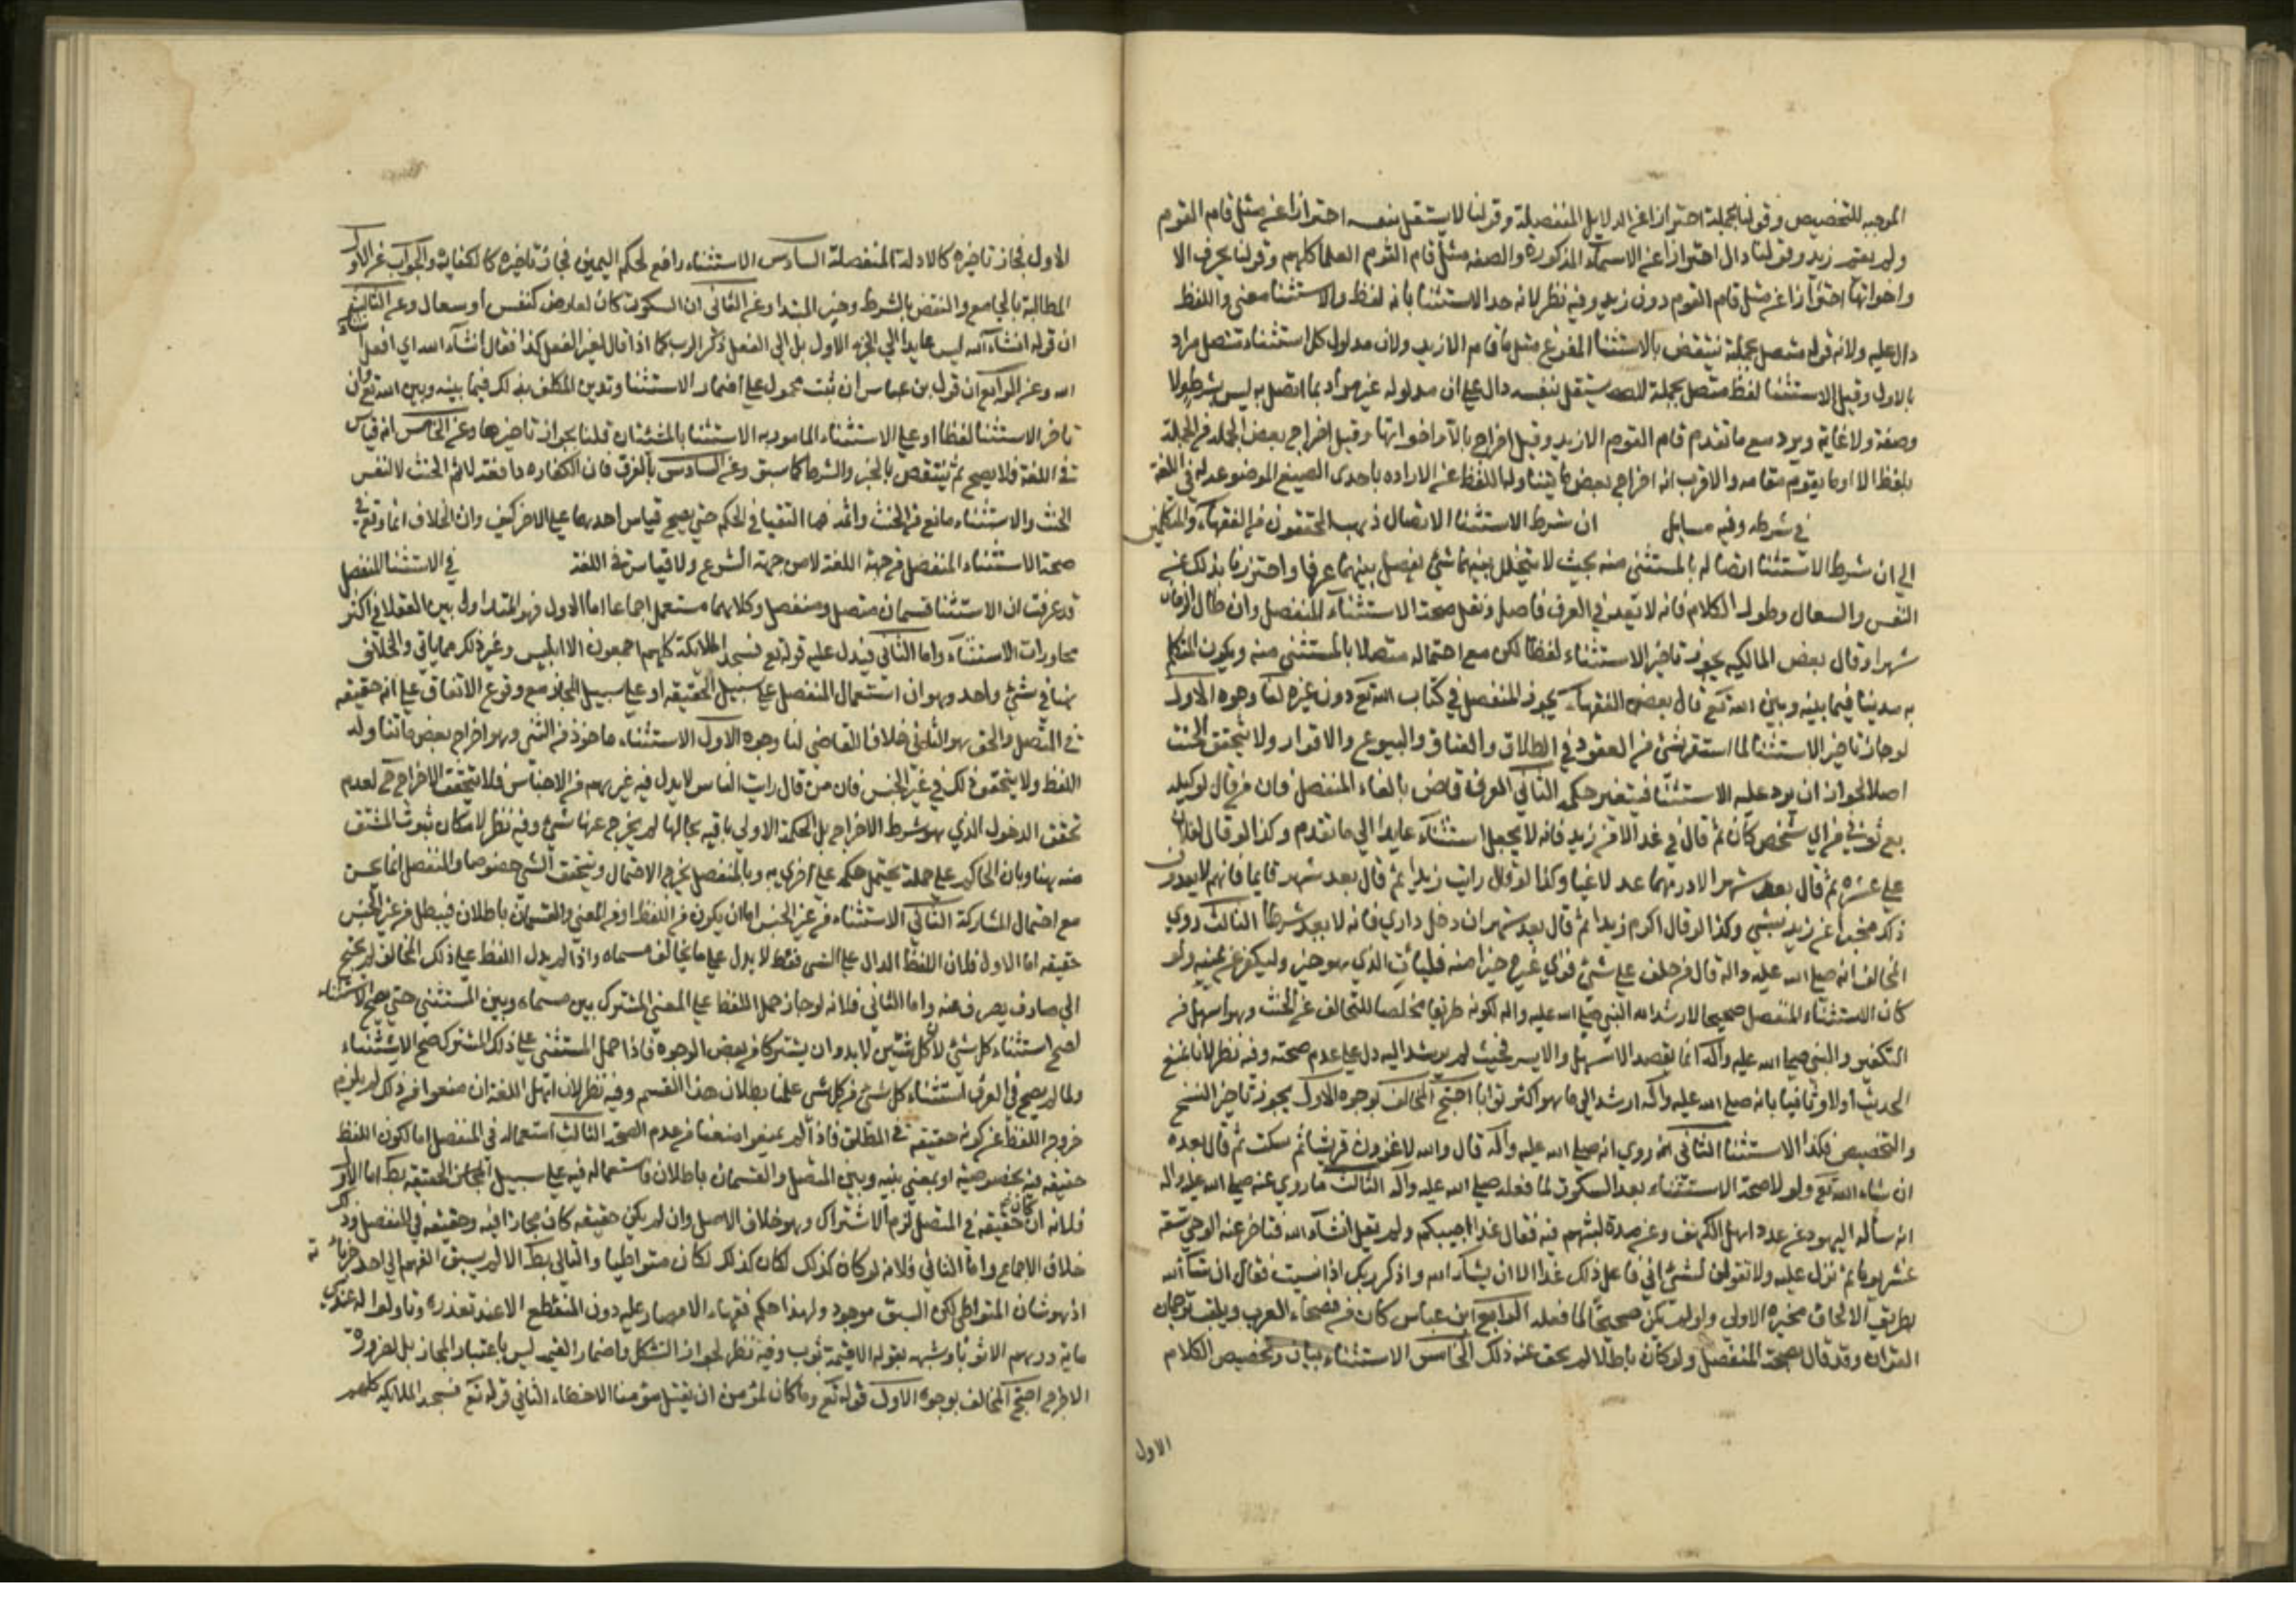 الموجبه للتخصيص وقولنا بجملة احترازا عن الدلايل المنفصلة وقولنا لا يستقل بنفسه احترازا عن مثل قام القوم
ولم يقم زيد وقولنا دال احترازا عن الاسماء المذكورة والصفه مثل قام القوم العلما كلهم وقولنا بحرف الا
واخواتها احترازا عن مثل قام القوم دون زيد وفيه نظر لانه حد الاستثنا بانه لفظ والاستثنا معنى واللفظ
دال عليه ولانه قوله متصل بجملة ينتقض بالاستثنا المفرغ مثل ما قام الا زيد ولان مدلول كل استثناء متصل مراد
بالاول وقيل الاستثنا لفظ متصل بجملة لا يستقل بنفسه دال على ان مدلوله غير مراد بما اتصل به ليس بشرط ولا
وصفة ولا غاية ويرد مع ما تقدم قام القوم الا زيد وقيل اخراج بالا واخواتها وقيل اخراج بعض الجملة من الجملة
بلفظ الا او ما يقوم مقامه والاقرب انه اخراج بعض ما يتناوله اللفظ عن الاراده باحدى الصيغ الموضوعه له في اللغة
في شرطه وفيه مسايل ان شرط الاستثنا الاتصال ذهب المحققون من الفقهاء والمتكلمين
الي ان شرط الاستثنا اتصاله بالمستثنى منه بحيث لا يتخلل بينهما شئ يفصل بينهما عرفا واحترزنا بذلك عن
النفس والسعال وطول الكلام فانه لا يعد في العرف فاصل ونقل صحة الاستثناء المنفصل وان طال الزمان
شهرا وقال بعض المالكيه يجوز تاخير الاستثناء لفظا لكن مع احتماله متصلا بالمستثنى منه ويكون المتكلم
به مدينا فيما بينه وبين الله تع قال بعض الفقهاء يجوز المنفصل في كتاب الله تع دون غيره لنا وجوه الاول
لو جاز تاخير الاستثنا لما استقر شئ من العقود في الطلاق والعتاق والبيوع والاقرار ولا يتحقق الحنث
اصلا لجواز ان يرد عليه الاستثنا فيتغير حكمه الثاني العرف قاض بالغاء المنفصل فان من قال لوكيله
بع ثوبي من اي شخص كان ثم قال في غد الا من زيد فانه لا يجعل استثناء عايدا الي ما تقدم وكذا لو قال لفلان
علي عشره ثم قال بعد شهر الا درهما عد لاغيا وكذا لو قال رايت زيدا ثم قال بعد شهر قايما فانهم لا يعدون
ذلك مخبرا عن زيد بشي وكذا لو قال اكرم زيدا ثم قال بعد شهر ان دخل داري فانه لا يعد شرطا الثالث روي
المخالف انه صلي الله عليه واله قال من حلف على شئ فراي غيره خيرا منه فليات الذي هو خير وليكفر عن يمينه ولو
كان الاستثناء المنفصل صحيحا لارشد اليه النبي صلي الله عليه واله لكونه طريقا مخلصا للحالف عن الحنث وهو اسهل من
التكفير والنبي صلي الله عليه واله انما يقصد الاسهل والايسر فحيث لم يرشد اليه دل على عدم صحته وفيه نظر لانا نمنع
الحديث اولا وثانيا بانه صلي الله عليه واله ارشد الي ما هو اكثر ثوابا احتج المخالف بوجوه الاول يجوز تاخير النسخ
والتخصيص فكذا الاستثنا الثاني انه روي انه صلي الله عليه واله قال والله لاغزون قريشا ثم سكت ثم قال بعده
ان شاء الله تع ولولا صحة الاستثناء بعد السكوت لما فعله صلي الله عليه واله الثالث ما روي عنه صلي الله عليه واله
انه ساله اليهود عن عدد اهل الكهف وعن مدة لبثهم فيه فقال غدا اجيبكم ولم يقل انشاء الله فتاخر عنه الوحي بضعة
عشر يوما ثم نزل عليه ولا تقولن لشئ اني فاعل ذلك غدا الا ان يشاء الله واذكر ربك اذا نسيت فقال ان شاء الله
بطريق الالحاق بخبره الاولي ولو لم يكن صحيحا لما فعله الرابع ابن عباس كان من فصحاء العرب ويلقب ترجمان
القران وقد قال بصحة المنفصل ولو كان باطلا لم يخف عنه ذلك الخامس الاستثناء بيان وتخصيص الكلام
الاول
الاول فجاز تاخيره كالادلة المنفصلة السادس الاستثناء رافع لحكم اليمين فجاز تاخيره كالكفاية والجواب عن الاول
المطالبة بالجامع والنقض بالشرط وخبر المبتدا وعن الثاني ان السكوت كان لعارض كنفس او سعال وعن الثالث
ان قوله انشاء الله ليس عايدا الي الخبر الاول بل الي الفعل ذكر الرب كما اذا قال لغيره افعل كذا فقال انشاء الله اي افعل انشاء
الله وعن الرابع ان قول بن عباس ان ثبت محمول على اضمار الاستثنا وتدين المكلف بذلك فيما بينه وبين الله تع وان
تاخر الاستثنا لفظا او على الاستثناء المامور به الاستثنا بالمشئتان قلنا بجواز تاخيرها وعن الخامس انه قياس
في اللغة فلا يصح ثم ينتقض بالخبر والشرط كما سبق وعن السادس بالفرق فان الكفاره رافعة لاثم الحنث لا لنفس
الحنث والاستثناء مانع من الحنث واثمه فما التقيا في الحكم حتي يصح قياس احدهما على الاخر كيف وان الخلاف انما وقع في
صحة الاستثناء المنفصل من جهة اللغة لا من جهة الشرع ولا قياس في اللغة في الاستثنا المنفصل
قد عرفت ان الاستثنا قسمان متصل ومنفصل وكلاهما مستعمل اجماعا اما الاول فهو المتداول بين العقلا في اكثر
محاورات الاستثناء واما الثاني فيدل عليه قوله تع فسجد الملائكة كلهم اجمعون الا ابليس وغير ذلك مما ياتي والخلاف
هنا في شئ واحد وهو ان استعمال المنفصل على سبيل الحقيقه او على سبيل المجاز مع وقوع الاتفاق على انه حقيقه
في المتصل والحق هو الثاني خلافا للقاضي لنا وجوه الاول الاستثناء ماخوذ من الثني وهو اخراج بعض ما تناوله
اللفظ ولا يتحقق ذلك في غير الجنس فان من قال رايت الناس لا يدل فيه غيرهم من الاجناس فلا يتحقق الاخراج ح لعدم
تحقق الدخول الذي هو شرط الاخراج بل الجملة الاولي باقيه بحالها لم يخرج عنها شئ وفيه نظر لامكان ثبوت المشتق
منه هنا وبان الحاكم على جملة يحتمل حكمه على اخرى به وبالمنفصل يخرج الاحتمال ويتحقق الشئ خصوصا والمنفصل انما يحسن
مع احتمال المشاركة الثاني الاستثناء من غير الجنس اما ان يكون من اللفظ او من المعنى والقسمان باطلان فيبطل من غير الجنس
حقيقه اما الاول فلان اللفظ الدال على الشي فقط لا يدل على ما يخالف مسماه واذا لم يدل اللفظ على ذلك المخالف لم يحتج
الي صارف يصرف عنه واما الثاني فلانه لو جاز حمل اللفظ على المعنى المشترك بين مسماه وبين المستثنى حتي يصح الاستثناء
لصح استثناء كل شئ لان كل شيئين لا بد وان يشتركا من بعض الوجوه فاذا حمل المستثنى على ذلك المشترك صح الاستثناء
ولما لم يصح في العرف استثناء كل شئ من كل شي علمنا بطلان هذا القسم وفيه نظر لان اهل اللغة ان منعوا من ذلك لم يلزم
خروج اللفظ عن كونه حقيقة في المطلق فاذا لم يمنعوا منعنا من عدم الصحة الثالث استعماله في المنفصل اما لكون اللفظ
حقيقه فيه بخصوصيته او بمعنى بينه وبين المتصل والقسمان باطلان فاستعماله فيه على سبيل المجاز لا الحقيقه بط اما الاول
فلانه ان كان حقيقه في المتصل لزم الاشتراك وهو خلاف الاصل وان لم يكن حقيقه كان مجازا فيه وحقيقه في المنفصل وذلك
خلاف الاجماع واما الثاني فلانه لو كان كذلك لكان كذلك لكان متواطيا والتالي بط والا لم يسبق الفهم الي احد جزياته
اذ هو شان المتواطي لكن السبق موجود ولهذا حكم فقهاء الامصار عليه دون المنقطع الا عند تعذره وتاولوا له عندي
ماية درهم الا ثوبا وشبهه بقوله الا قيمة ثوب وفيه نظر لجواز الشكل واضمار القيمة ليس باعتبار المجاز بل لضرورة
الاخراج احتج المخالف بوجوه الاول قوله تع وما كان لمؤمن ان يقتل مؤمنا الا خطاء الثاني قوله تع فسجد الملايكه كلهم